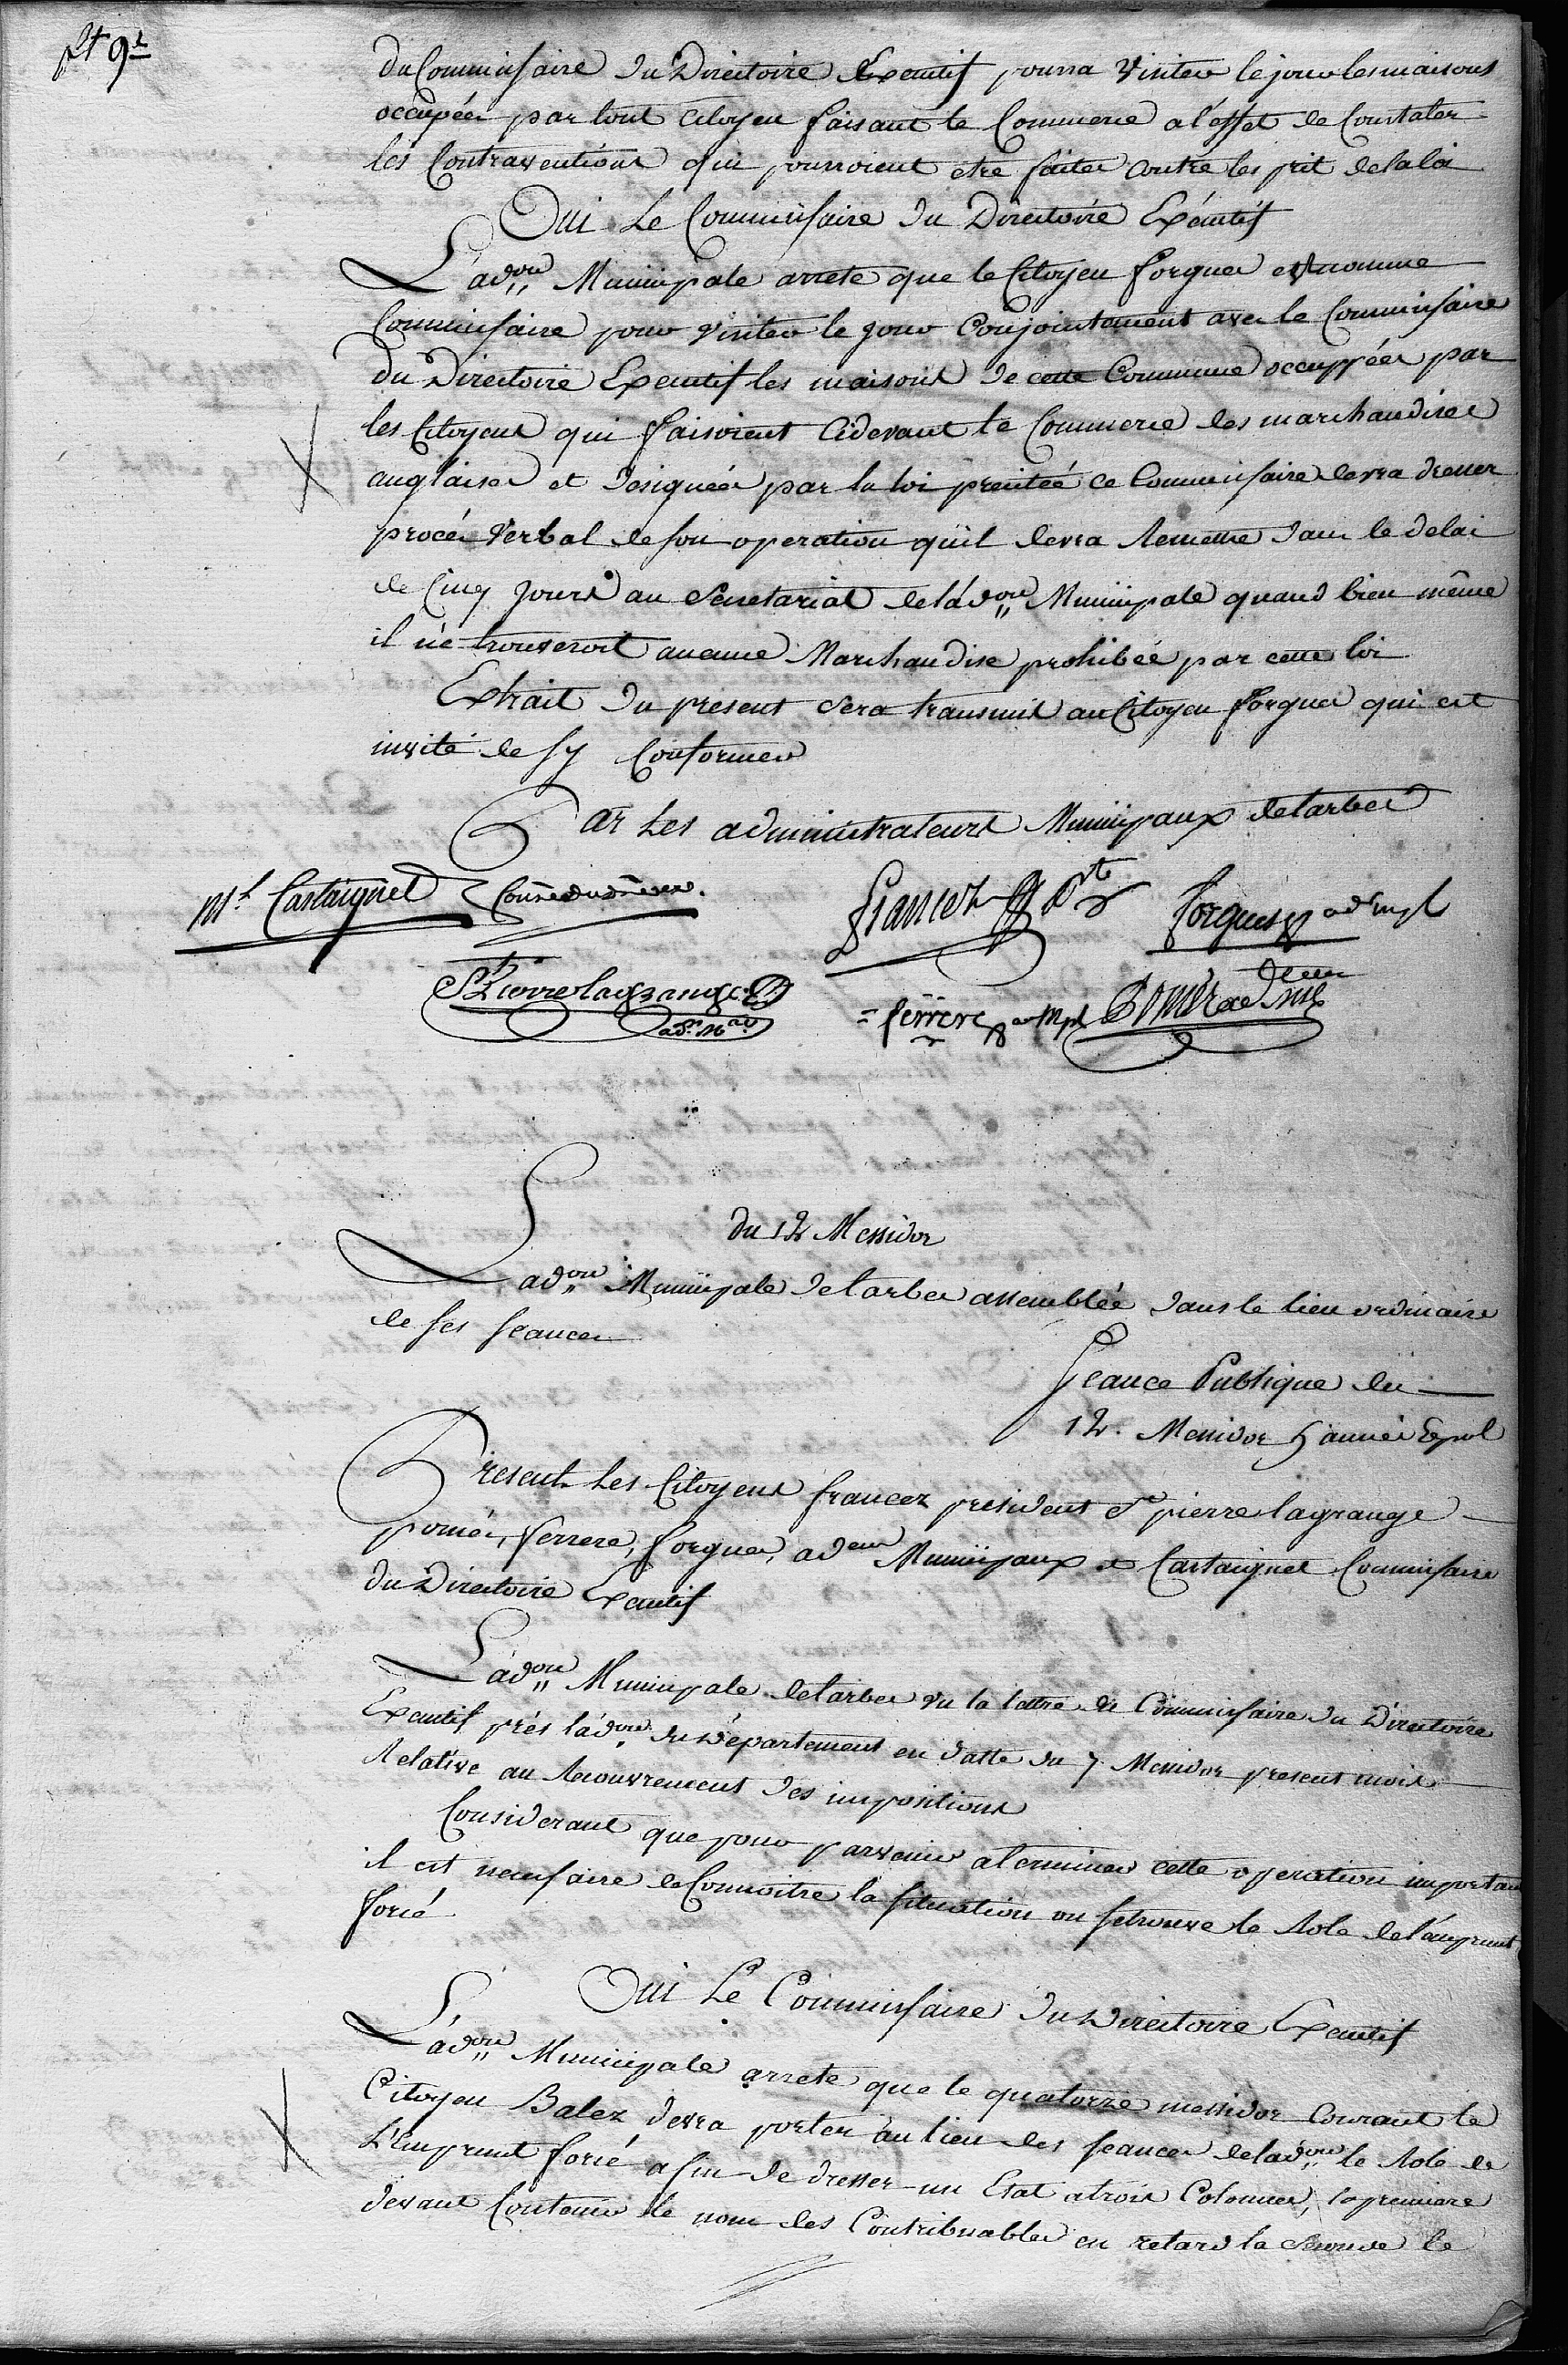 du Commissaire du Directoire Executif pourra visiter le jour les maisons
occupées par tout citoyen faisant le Commerce a l'effet de Constater
les Contraventions qui pourroient etre faites contre les prit de la loi
Oui Le Commissaire du Directoire Exécutif
L'ad.on Municipale arrete que le Citoyen forgues est nommé
Commissaire pour visiter le jour Conjointement avec le Commissaire
du Directoire Executif les maisons de cette Commune occuppées par
les Citoyens qui faisoient cidevant le Commerce des marchandises
anglaises et designées par la loi precitée ce Commissaire devra dresser
procés Verbal de son operation qu'il devra Remettre dans le delai
de Cinq jours au Secretariat de l'ad.on Municipale quand bien même
il ne trouveroit aucune Marchandise prohibée par cette loi
Extrait du present sera transmis au Citoyen forgues qui est
invité de sy Conformer
Par Les administrateurs Municipaux de tarbes
Mt Castaignet
francez Pdt
forgues ad mpl
St Pierre lagrange
ad.r M.al
ferrere ad Mpl
Pomés ad
du 12 Messidor
L'ad.on Municipale de tarbes assemblée dans le lieu ordinaire
de ses seances
Seance Publique du
12. Messidor 5 année Repub
Present Les Citoyens francez president St pierre lagrange
pomés, ferrere, forgues, ad.eurs Municipaux et Castaignet Commissaire
du Directoire Executif
L'ad.on Municipale de tarbes vu la lettre du Commissaire du Directoire
Executif prés l'ad.on du Département en datte du 7 Messidor present mois
Relative au Recouvrement des impositions
Considerant que pour parvenir a terminer cette operation importante
il est necessaire de Connoitre la situation ou se trouve le Role de l'emprunt
forcé
Oui Le Commissaire du Directoire Executif
L'ad.on Municipale arrete que le quatorze messidor Courant le
Citoyen Balez devra porter au lieu des seances de l'ad.on le Role de
L'Emprunt forcé afin de dresser un Etat a trois Colonnes, la premiere
devant Contenir le nom des Contribuables en retard la seconde le